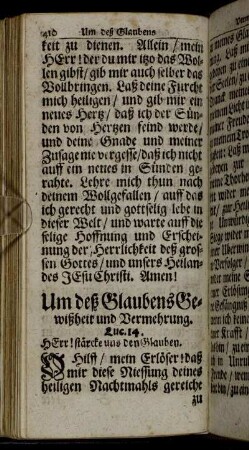 410 Um deß Glaubens
keit zu dienen. Allein / mein
HErr! der du mir itzo das Wol-
len gibst / gib mir auch selber das
Vollbringen. Laß deine Furcht
mich heiligen / und gib mir ein
neues Hertz / daß ich der Sün-
den von Hertzen feind werde /
und deine Gnade und meiner
Zusage nie vergesse / daß ich nicht
auff ein neues in Sünden ge-
rahte. Lehre mich thun nach
deinem Wollgefallen / auff das
ich gerecht und gottselig lebe in
dieser Welt / und warte auff die
selige Hoffnung und Erschei-
nung der Herrlichkeit deß gros-
sen Gottes / und unsers Heilan-
des JEsu Christi. Amen!
Um deß Glaubens Ge-
wißheit und Vermehrung.
Luc. 14.
HErr! stärcke uns den Glauben.
O Hilff / mein Erlöser! daß
mir diese Niessung deines
heiligen Nachtmahls gereiche
zu